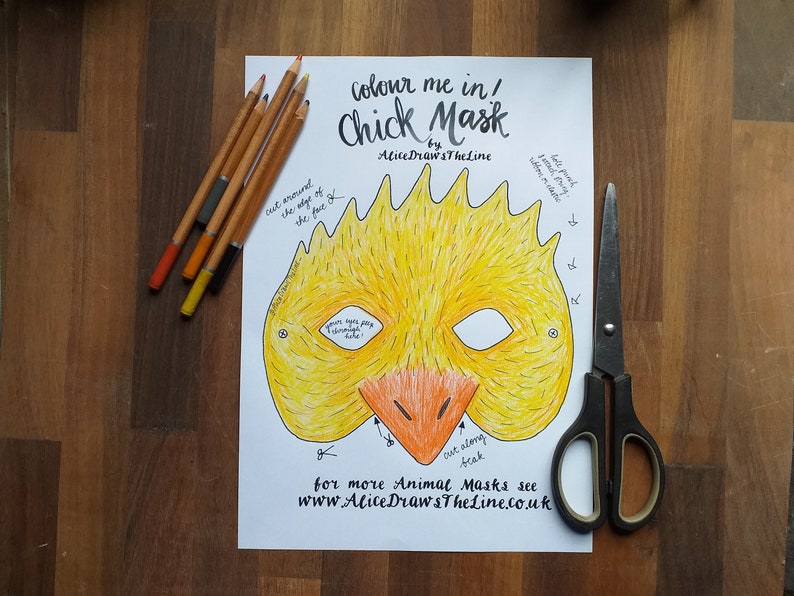 colour me in!
Chick Mask
by
AliceDrawsTheLine
hole punch
& attach string,
ribbon or elastic
cut around
the edge of
the face
AliceDrawsTheLine
your eyes peep
through
here!
cut along
beak
for more Animal Masks see
www.AliceDrawsTheLine.co.uk